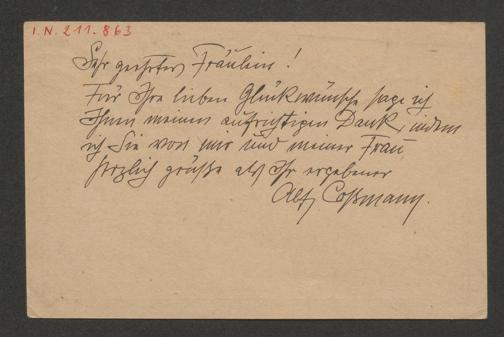 I.N. 211.863
Sehr geehrtes Fräulein!
Für Ihre lieben Glückwünsche sage ich
Ihnen meinen aufrichtigen Dank, indem
ich Sie von mir und meiner Frau
herzlich grüße als Ihr ergebener
Alf. Coßmann.